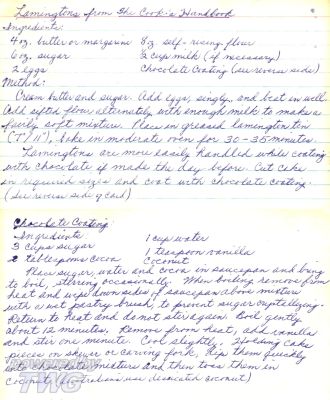 Lamingtons from The Cook's Handbook
Ingredients:
4 oz. butter or margarine 8 oz self-rising flour
6 oz. sugar ½ cup milk (if necessary)
2 eggs Chocolate Coating (see reverse side)
Method:
Cream butter and sugar. Add eggs, singly, and beat in well.
Add sifted flour alternately with enough milk to make a
fairly soft mixture. Place in greased lamington tin
(7"/11"), bake in moderate oven for 30-35 minutes.
Lamingtons are more easily handled while coating
with chocolate if made the day before. Cut cake
in required sizes and coat with chocolate coating.
(See reverse side of card)
Chocolate Coating:
Ingredients
3 cups sugar 1 cup water
2 tablespoons cocoa 1 teaspoon vanilla
coconut
Place sugar, water and cocoa in saucepan and bring
to boil, stirring occasionally. When boiling remove from
heat and wipe down sides of saucepan above mixture
with a wet pastry brush, to prevent sugar crystallizing.
Return to heat and do not stir again. Boil gently
about 12 minutes. Remove from heat, add vanilla
and stir one minute. Cool slightly. Holding cake
pieces on skewer or carving fork, dip them quickly
into chocolate mixture and then toss them in
coconut. (Australians use desiccated coconut)
TWG